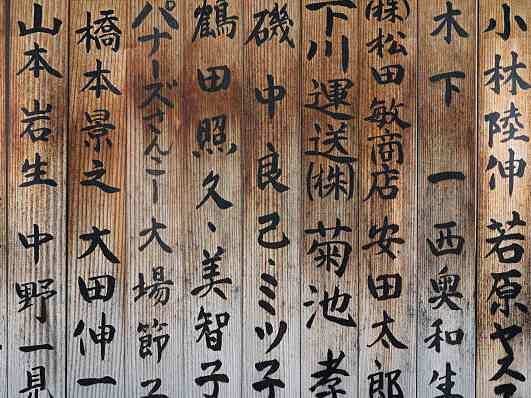 小林陸伸 若原ヤス子
木下 一 西奥和生
(株)松田敏商店 安田太郎
下川運送(株) 菊池 孝
磯 中良己・ミツ子
鶴田照久、美智子
パナーズさんこー大場節子
橋本景之 大田伸一
山本岩生 中野一見